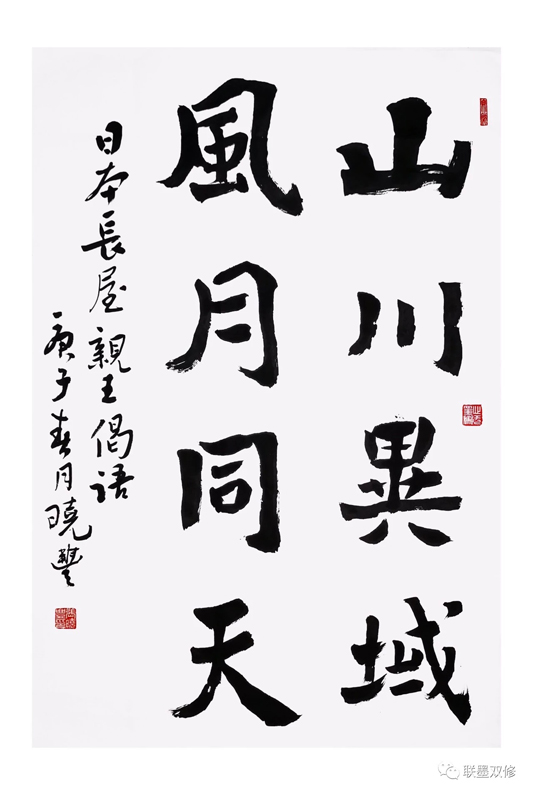 山川異域
風月同天
日本長屋親王偈語
庚子春月曉豐
联墨双修